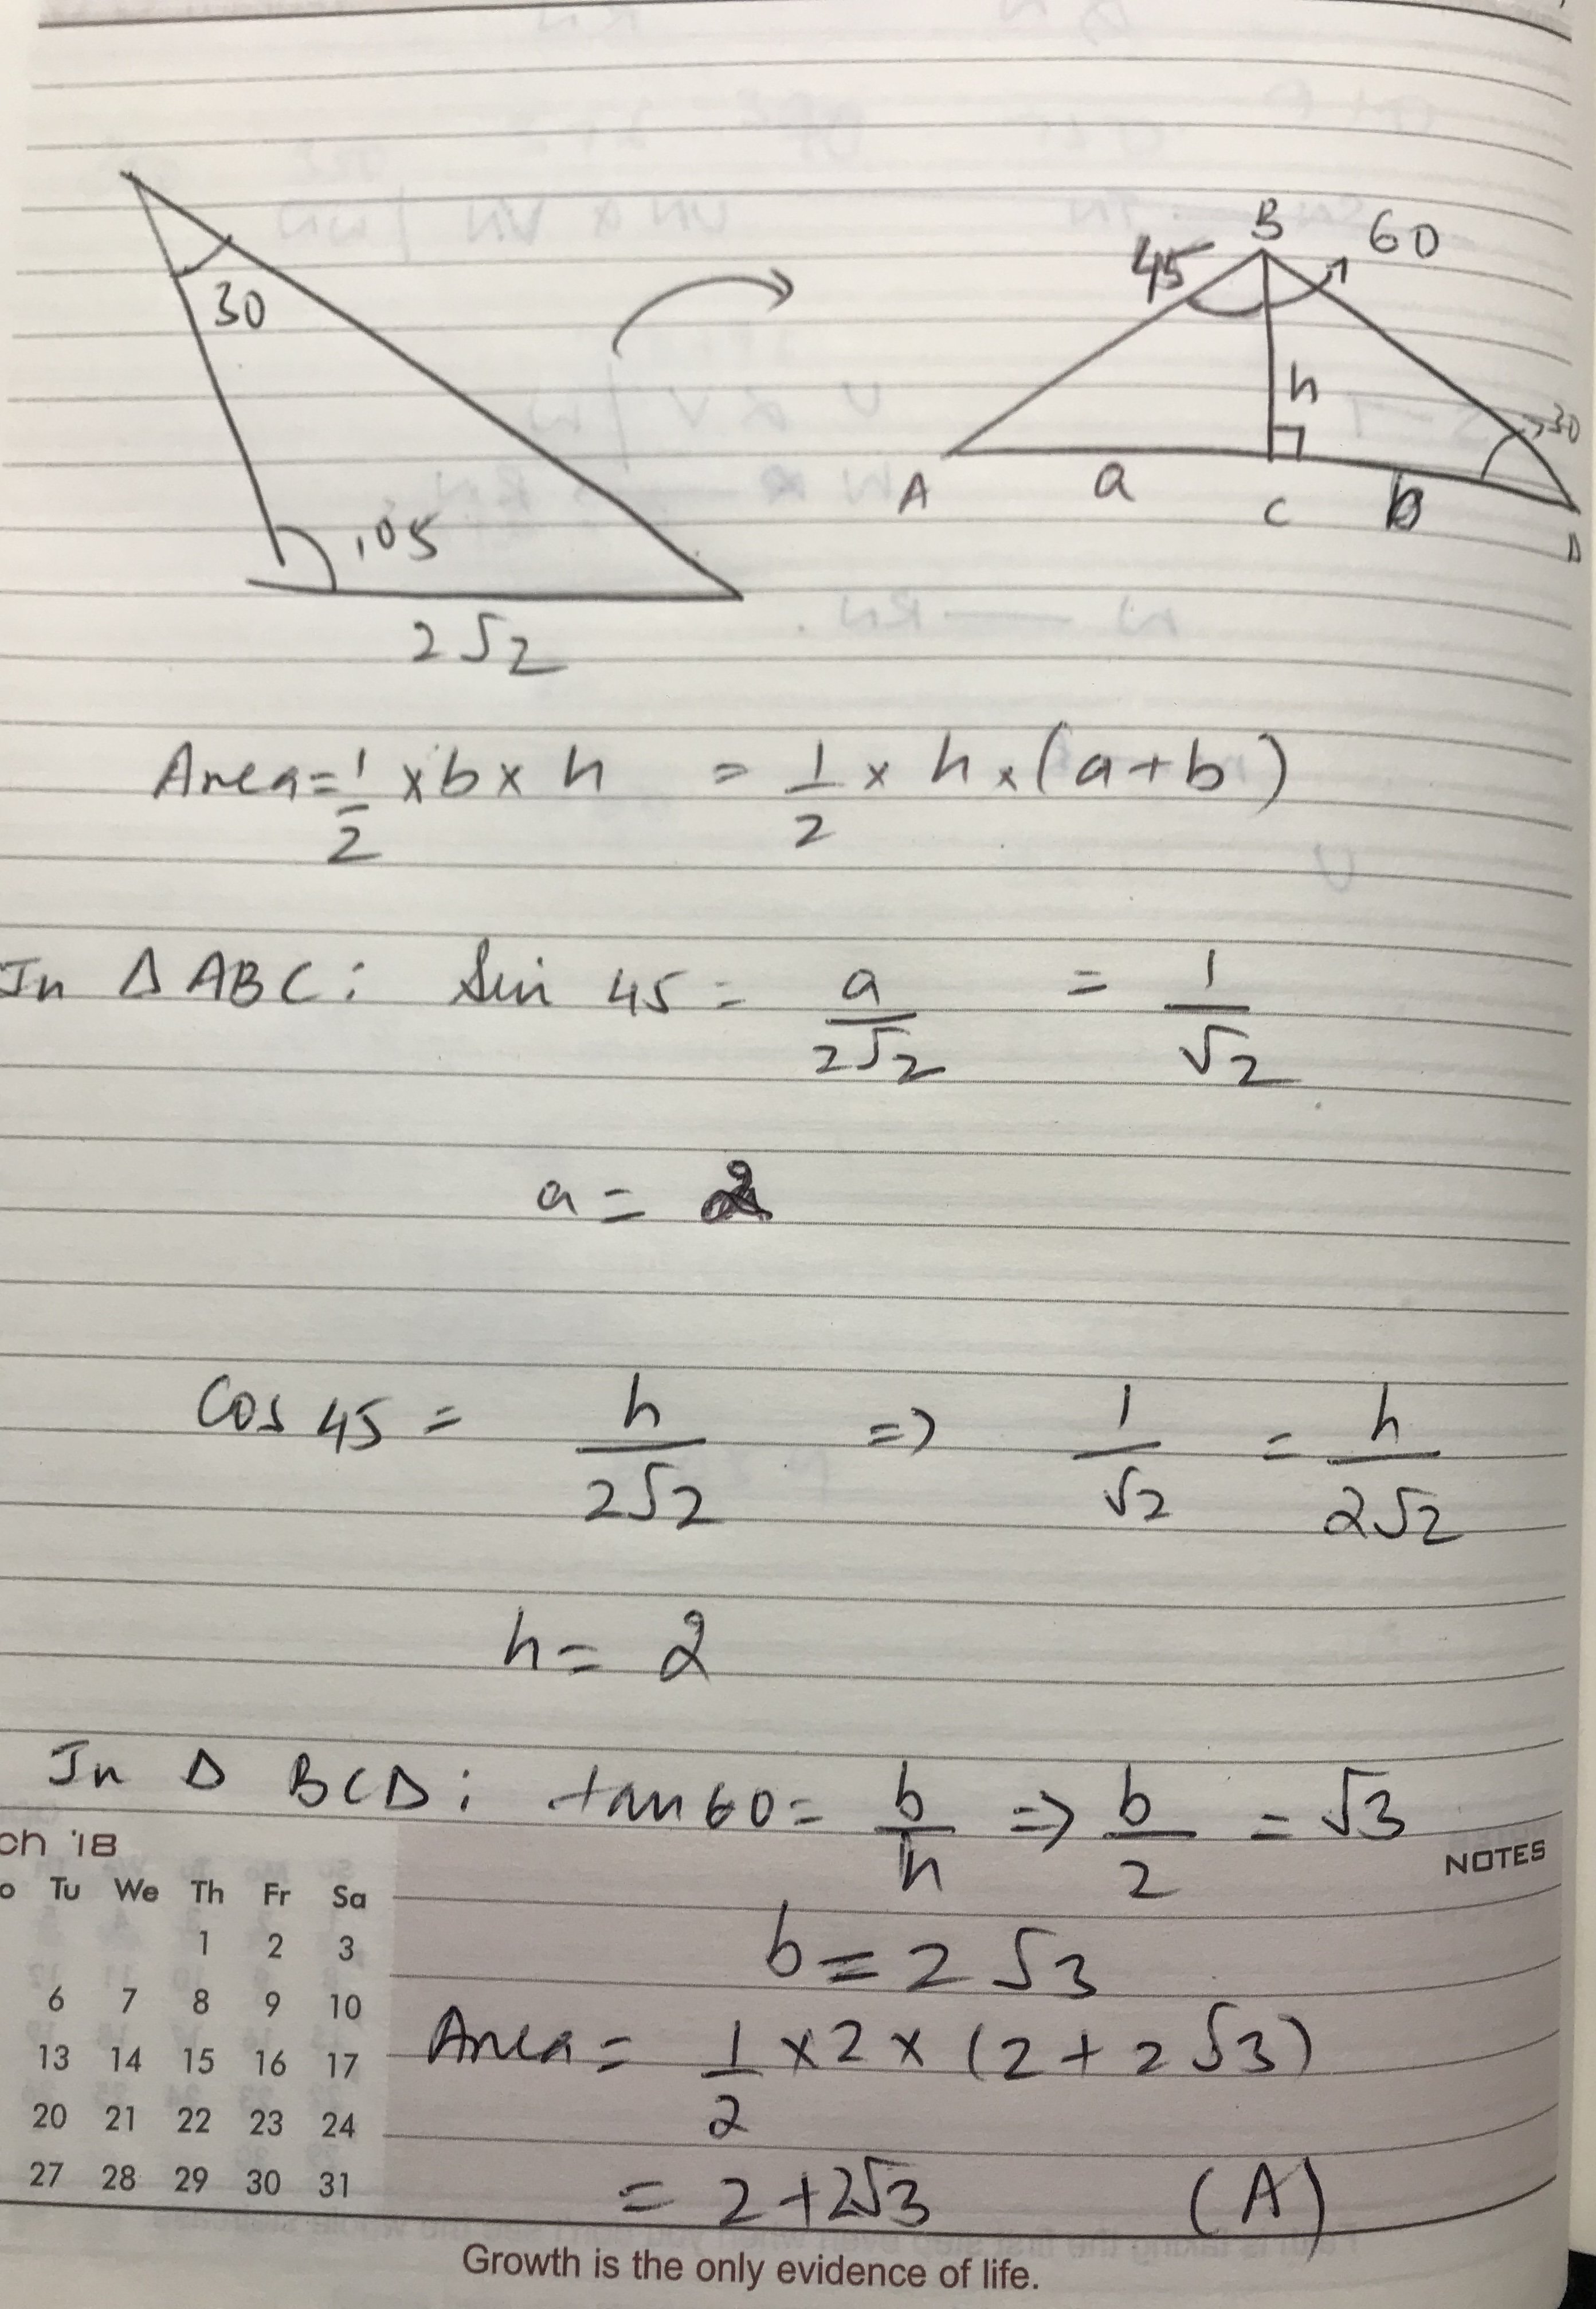 30
105
2√2
B
45
60
h
30
A
a
C
b
D
Area = 1/2 × b × h = 1/2 × h × (a+b)
In Δ ABC: Sin 45 = a/2√2 = 1/√2
a = 2
Cos 45 = h/2√2 => 1/√2 = h/2√2
h = 2
In Δ BCD: tan 60 = b/h => b/2 = √3
b = 2√3
Area = 1/2 × 2 × (2 + 2√3)
= 2+2√3 (A)
ch '18
NOTES
o Tu We Th Fr Sa
1 2 3
6 7 8 9 10
13 14 15 16 17
20 21 22 23 24
27 28 29 30 31
Growth is the only evidence of life.